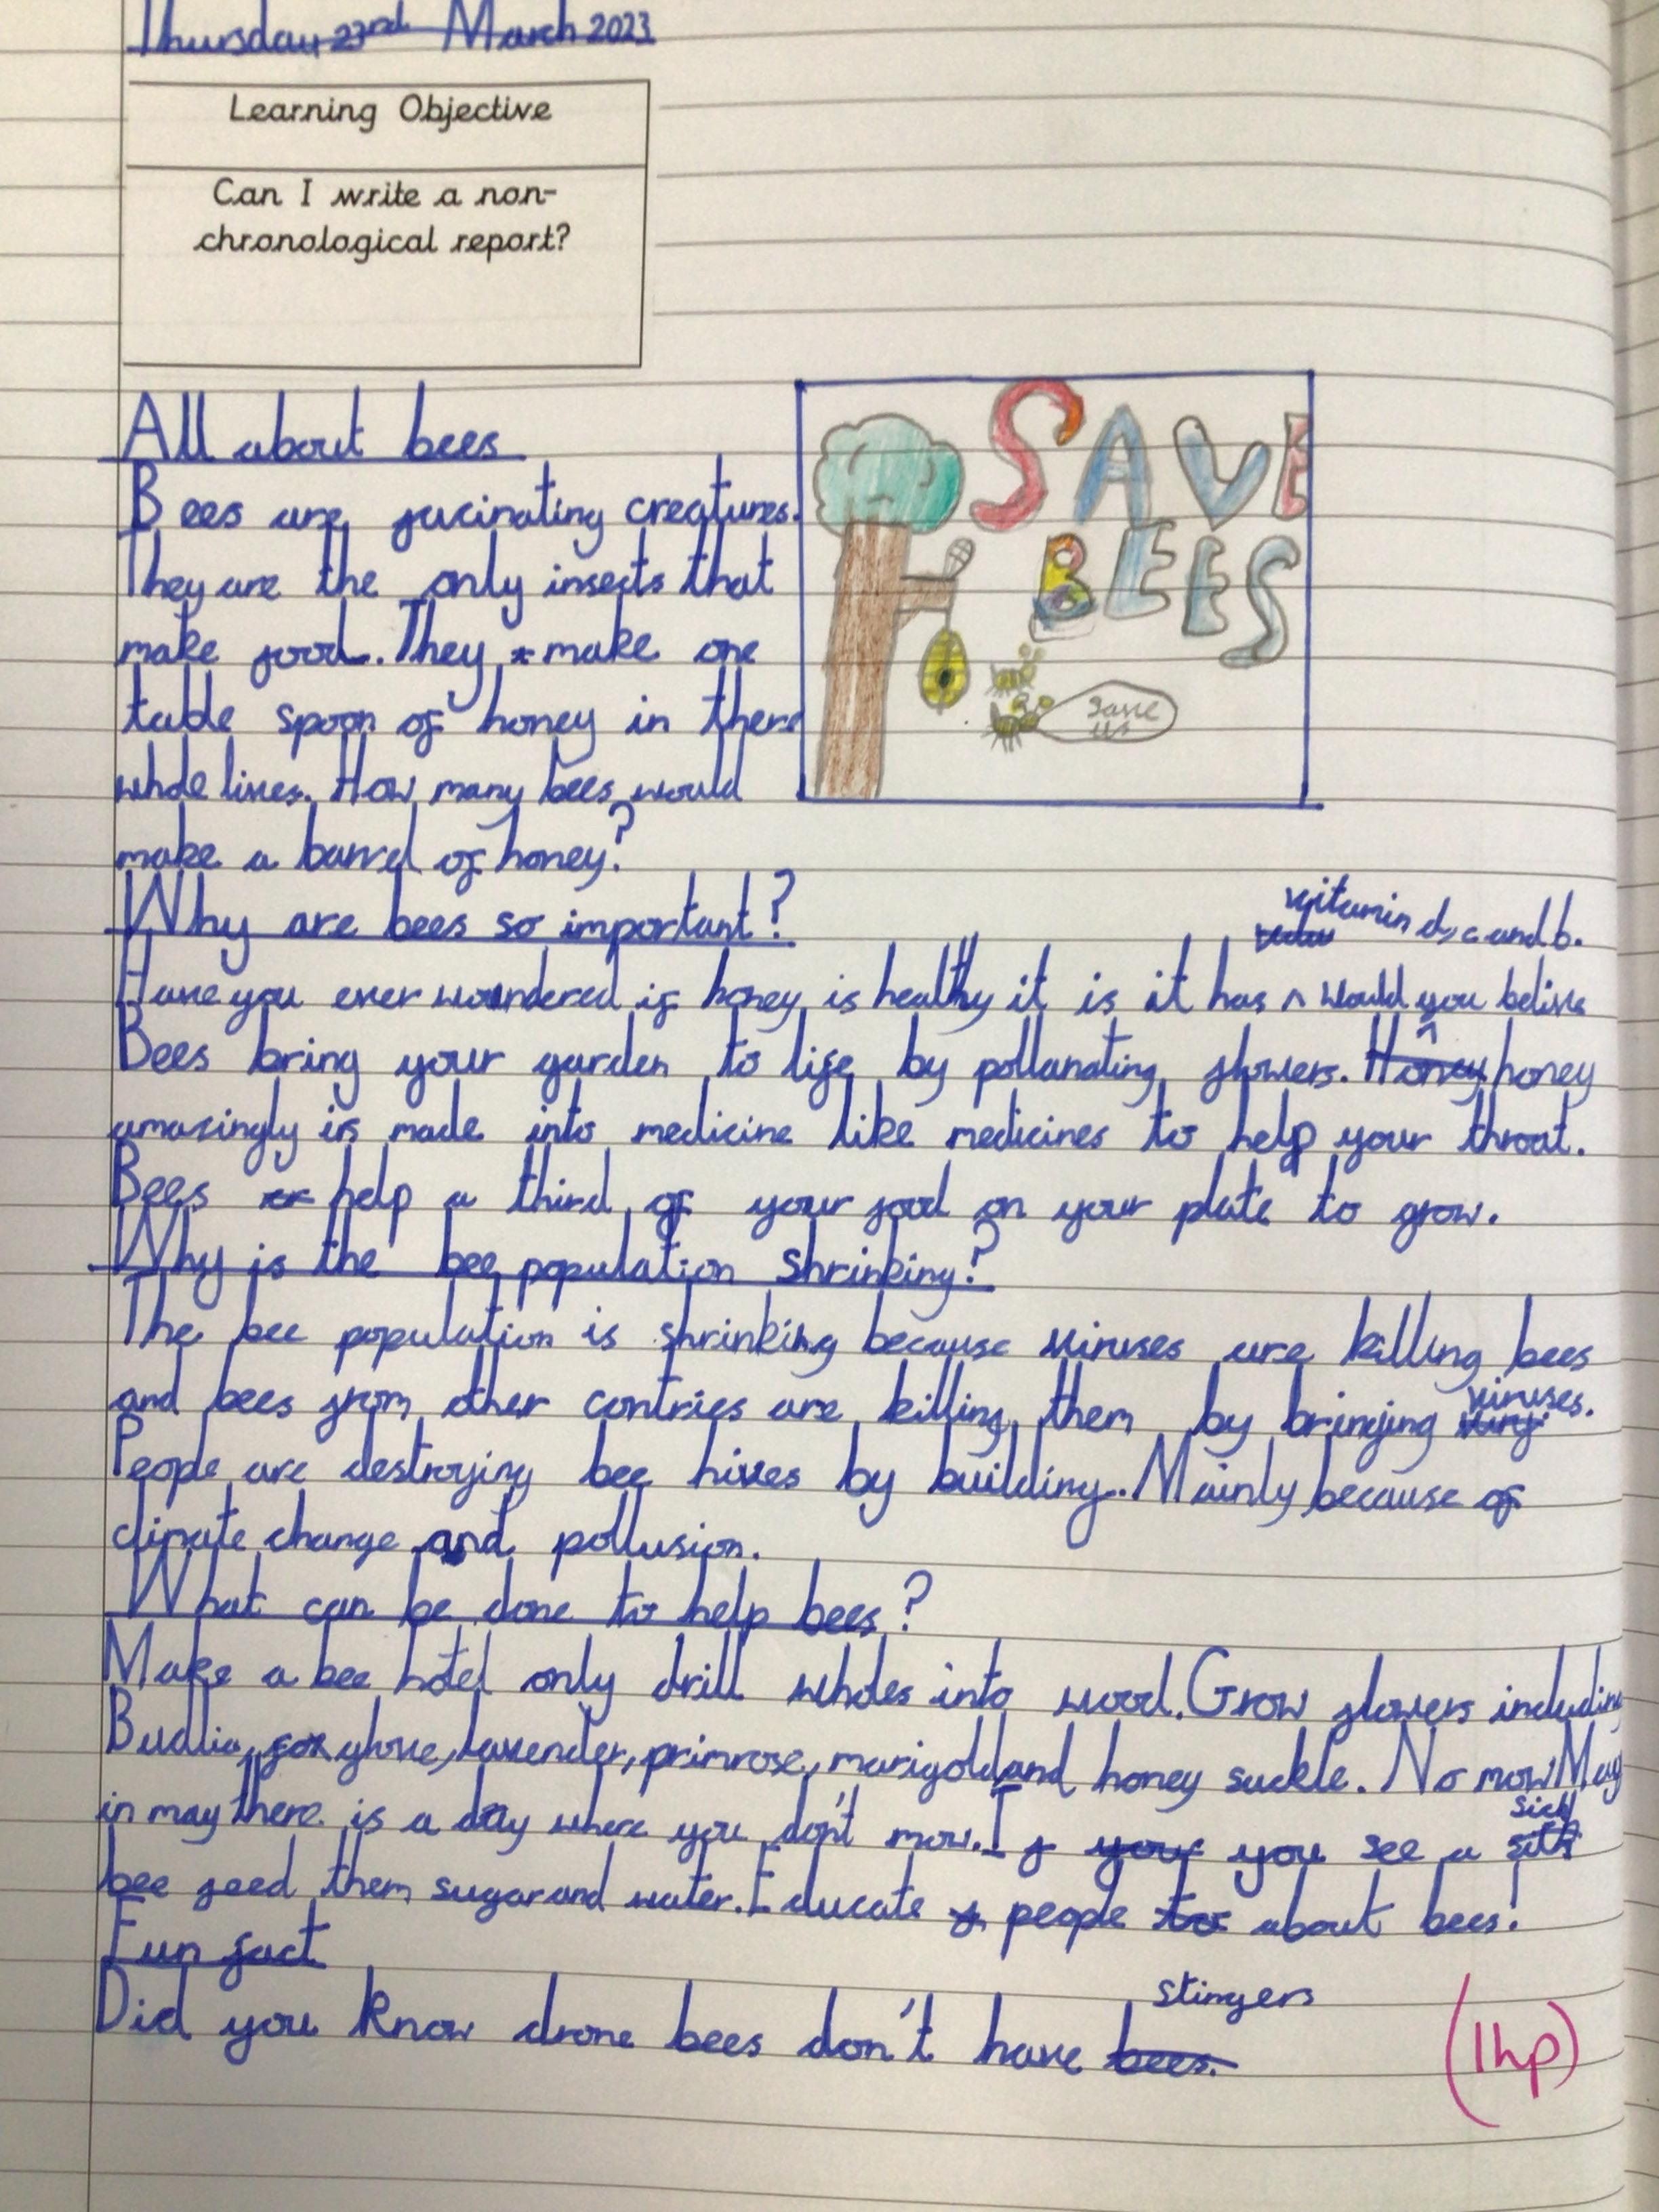 Thursday 23rd March 2023
Learning Objective
Can I write a non-
chronological report?
All about bees
Bees are facinating creatures.
They are the only insects that
make food. They make one
table spoon of honey in there
whole lives. How many bees would
make a barrel of honey?
SAVE
BEES
Save
us
Why are bees so important?
vitamin d, c and b.
Have you ever wondered if honey is healthy it is it has ^ Would you belive
Bees bring your garden to life by pollanating flowers. Honey honey
amazingly is made into medicine like medicines to help your throat.
Bees help a third of your food on your plate to grow.
Why is the bee population shrinking?
The bee population is shrinking because viruses are killing bees
and bees from other contries are killing them by bringing viruses.
People are destroying bee hives by building. Mainly because of
climate change and pollusion.
What can be done to help bees?
Make a bee hotel only drill wholes into wood. Grow flowers including
Budlia, fox glove, lavender, primrose, marigold and honey suckle. No mow May
in may there is a day where you don't mow. If your you see a sick
bee feed them sugar and water. Educate people to about bees!
Fun fact
stingers
Did you know drone bees don't have bees.
(1hp)